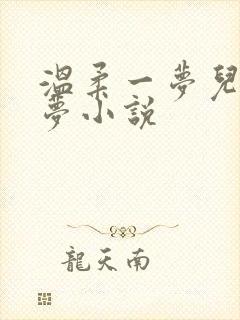 溫柔一夢兒
夢小說
龍天南